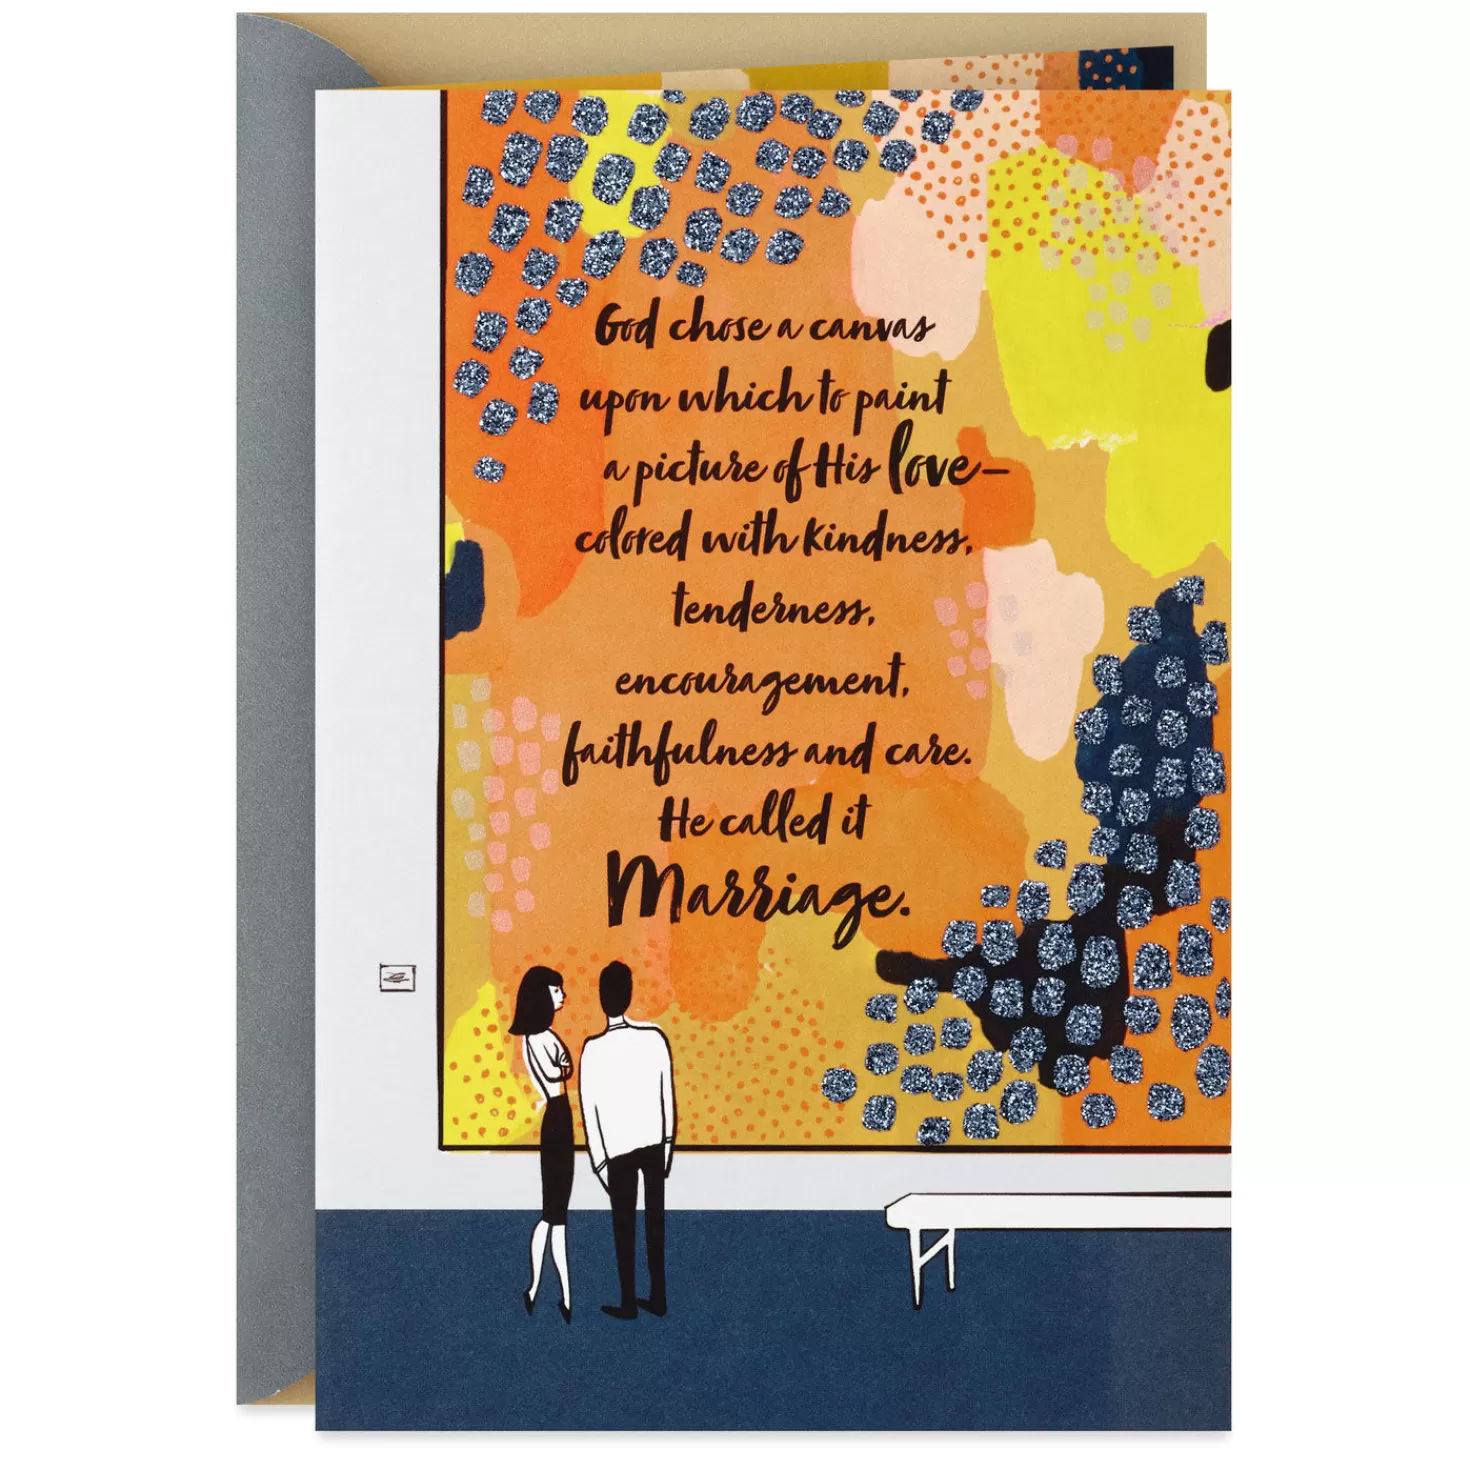 God chose a canvas
upon which to paint
a picture of His love–
colored with kindness,
tenderness,
encouragement,
faithfulness and care.
He called it
Marriage.